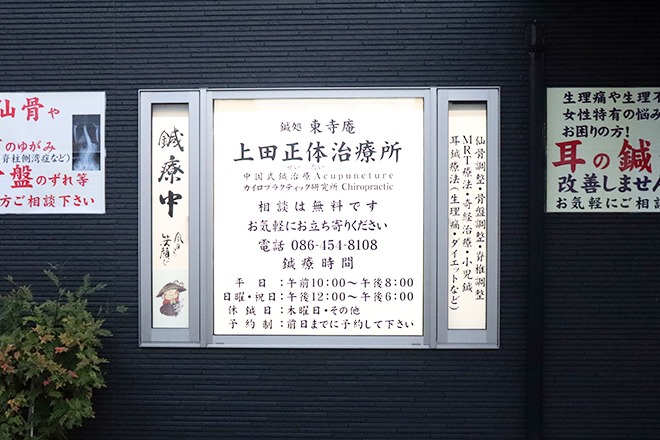 仙骨や
のゆがみ
脊柱側湾症など)
盤のずれ等
方ご相談下さい
鍼療中
鍼処 東寺庵
上田正体治療所
せいたい
中国式鍼治療 Acupuncture
カイロプラクティック研究所 Chiropractic
相談は無料です
お気軽にお立ち寄りください
電話 086-454-8108
鍼療時間
平日：午前10:00～午後8:00
日曜・祝日：午後12:00～午後6:00
休鍼日：木曜日・その他
予約制：前日までに予約して下さい
仙骨調整・骨盤調整・脊椎調整
MRT療法・奇経治療・小児鍼
耳鍼療法(生理痛・ダイエットなど)
生理痛や生理不
女性特有の悩み
お困りの方!
耳の鍼
改善しません
お気軽にご相